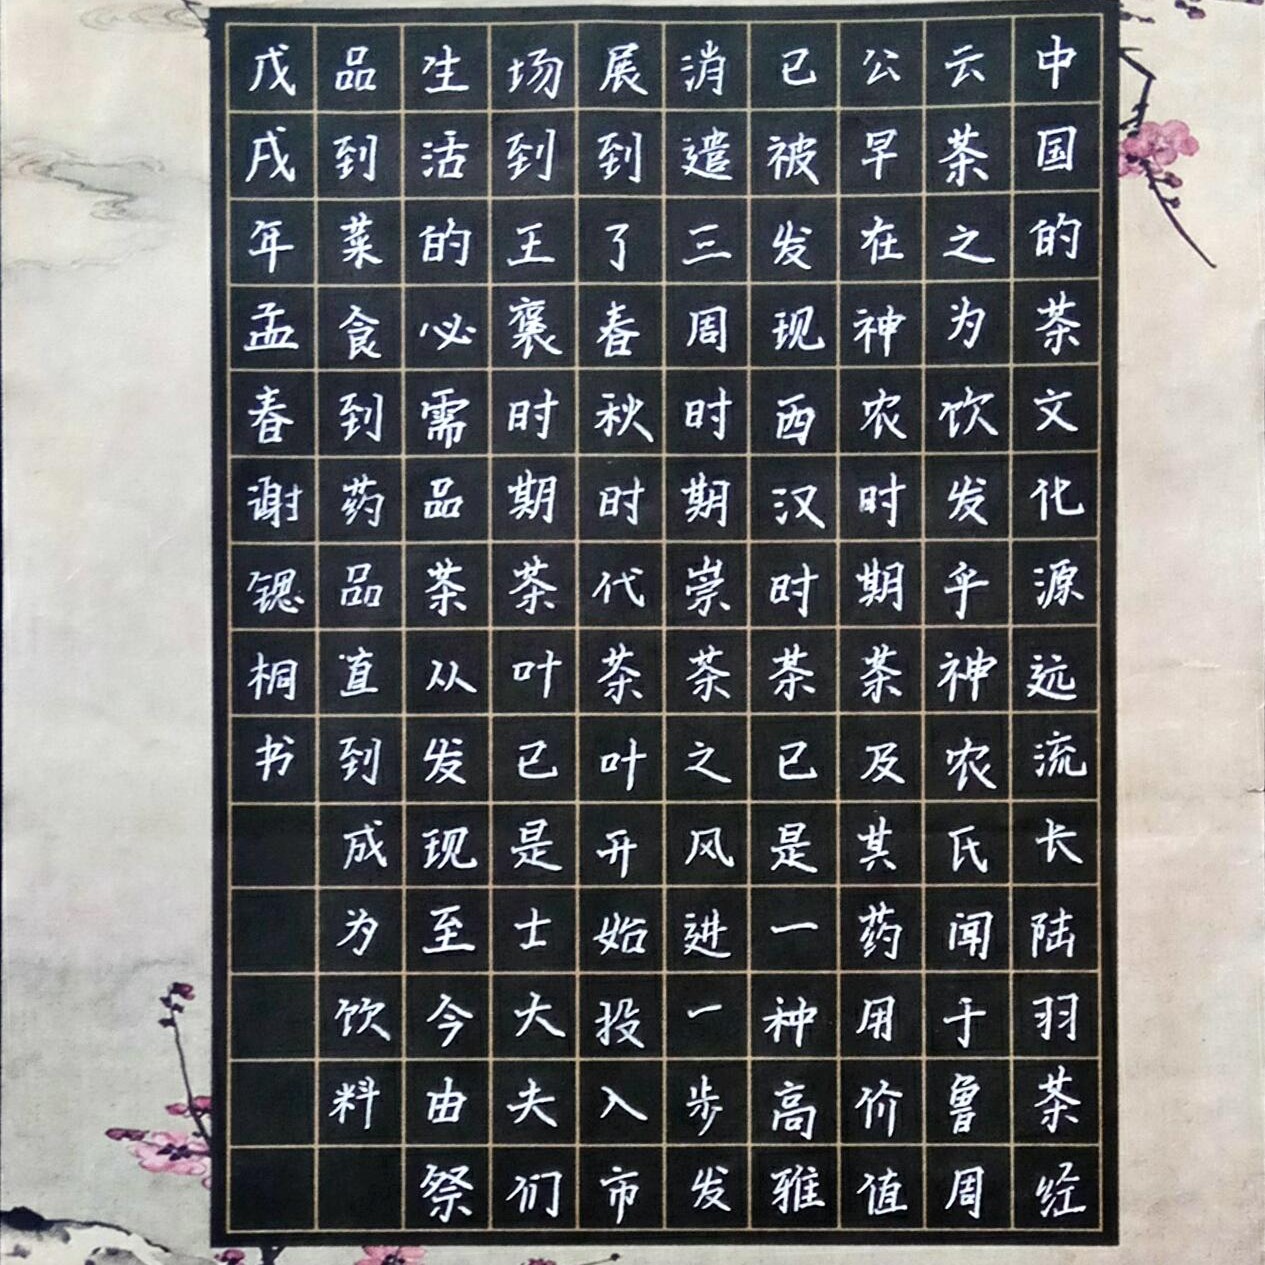 中国的茶文化源远流长陆羽茶经
云茶之为饮发乎神农氏闻于鲁周
公早在神农时期茶及其药用价值
已被发现西汉时茶已是一种高雅
消遣三周时期崇茶之风进一步发
展到了春秋时代茶叶开始投入市
场到王褒时期茶叶已是士大夫们
生活的必需品茶从发现至今由祭
品到菜食到药品直到成为饮料
戊戌年孟春谢锶桐书